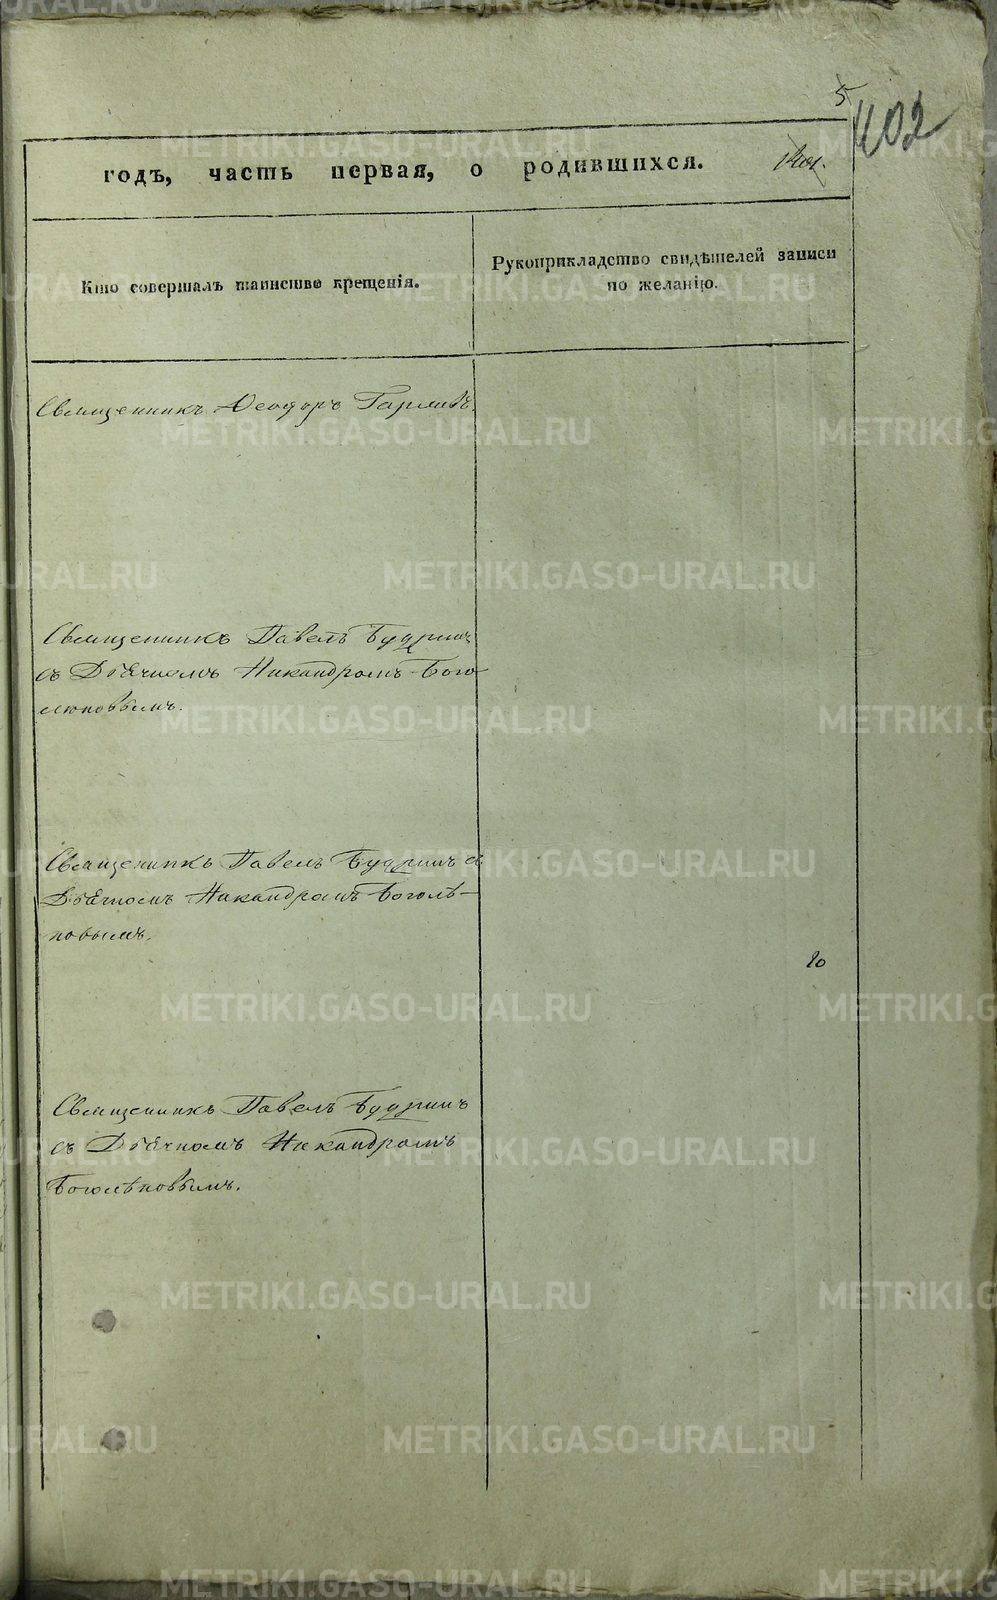 5
402
годъ, часть первая, о родившихся.
Кто совершалъ таинство крещенія.
Рукоприкладство свидѣтелей записи
по желанію.
Священникъ Ѳеодоръ
Священникъ Павелъ Будринъ
съ Дьячкомъ Никандромъ Бого-
лѣповымъ.
Священникъ Павелъ Будринъ съ
Дьячкомъ Никандромъ Боголѣ-
повымъ.
20
Священникъ Павелъ Будринъ
съ Дьячкомъ Никандромъ
Боголѣповымъ.
METRIKI.GASO-URAL.RU